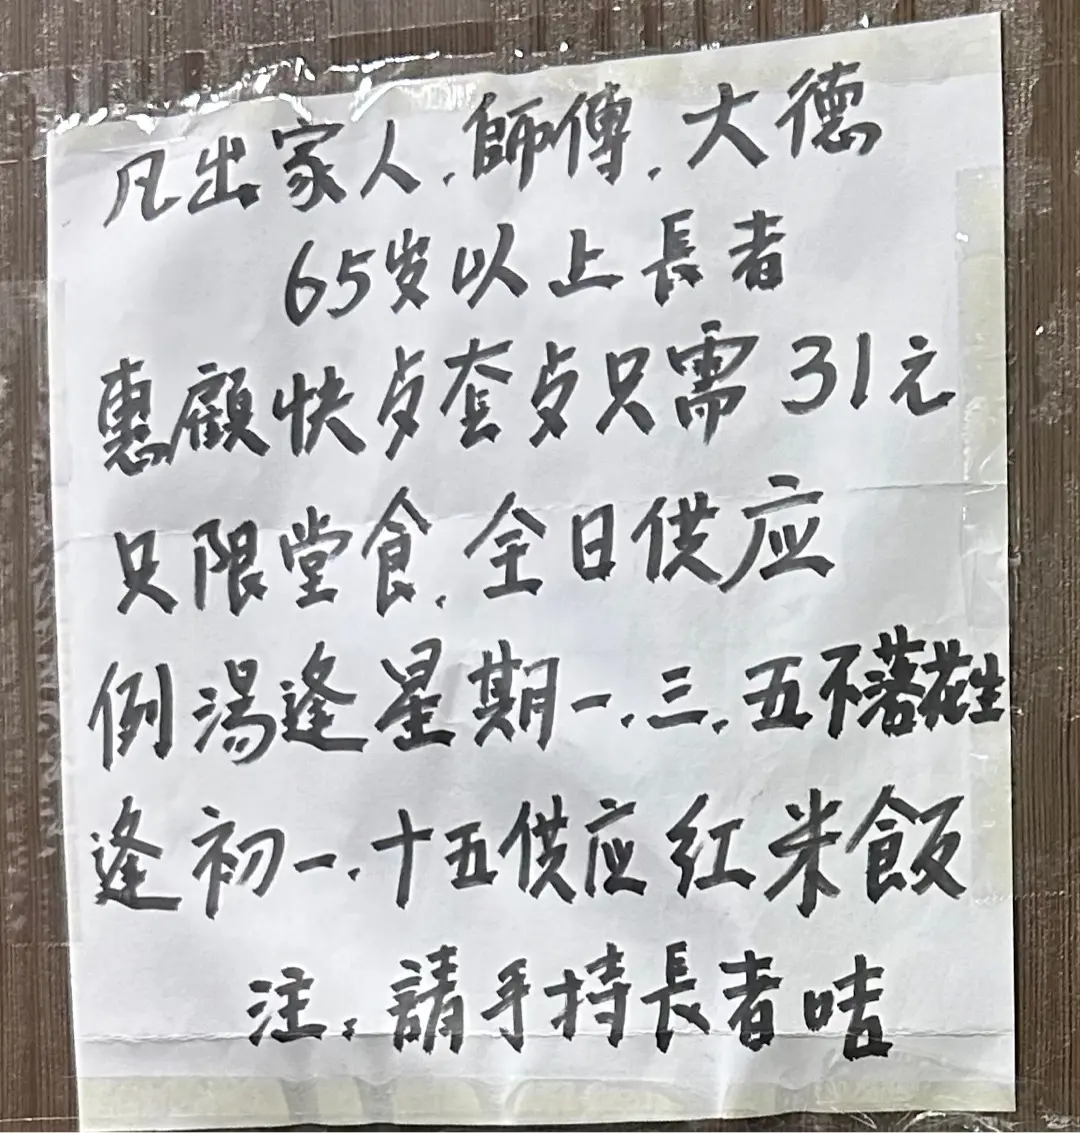 凡出家人、師傅、大德
65岁以上長者
惠顧快歺套歺只需31元
只限堂食、全日供应
例湯逢星期一、三、五不落花生
逢初一、十五供应红米飯
注：請手持長者咭